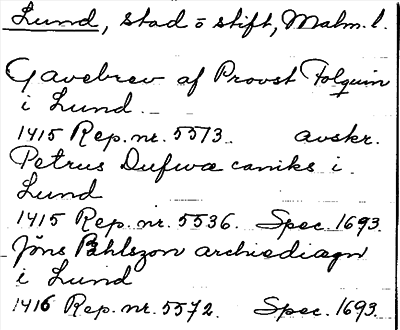 Lund, stad o stift, Malm. l.
Gavebrev af Provst Folquin
i Lund
1415 Rep. nr. 5513. avskr.
Petrus Dufwa caniks i
Lund
1415 Rep. nr. 5536. Spec. 1693.
Jöns Påhlszon archiediagn
i Lund
1416 Rep. nr. 5572. Spec. 1693.